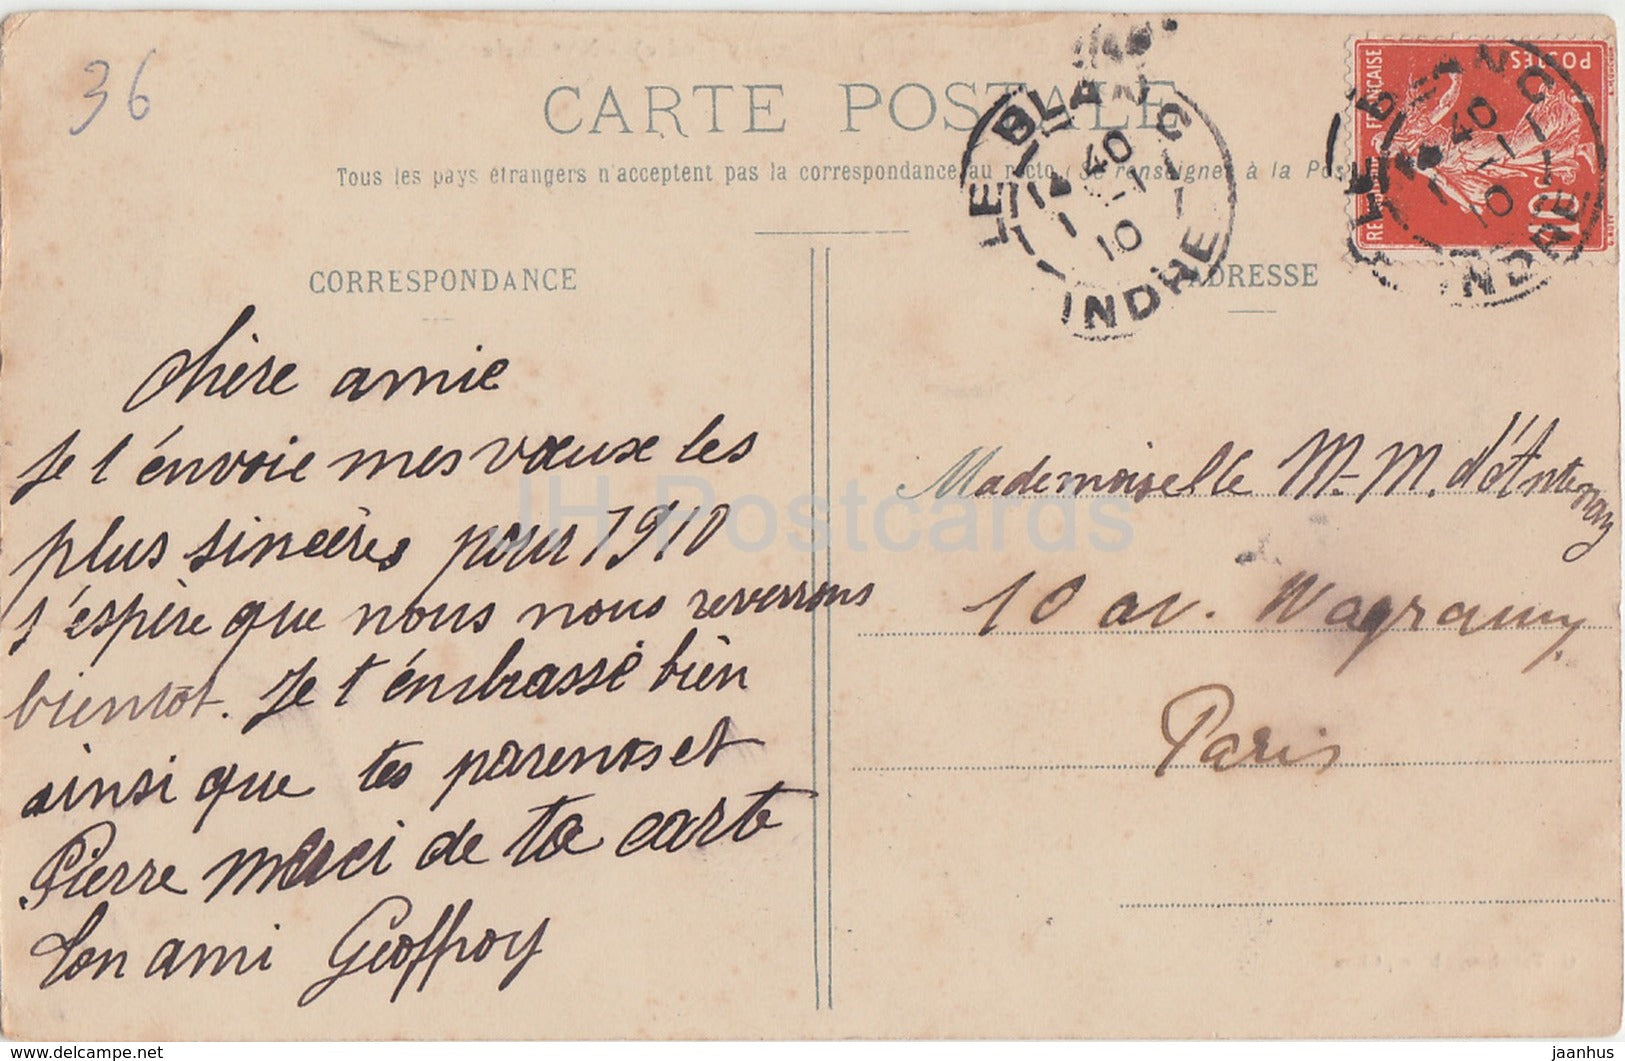 36
CARTE POSTALE
Tous les pays étrangers n'acceptent pas la correspondance au recto (Se renseigner à la Pos
LE BLANC
40
10-1
10
INDRE
POSTES
10c
LE BLANC
40
10-1
10
INDRE
CORRESPONDANCE
ADRESSE
Chère amie
Je t'envoie mes vœux les
plus sincères pour 1910
J'espère que nous nous reverrons
bientôt. Je t'embrasse bien
ainsi que tes parents et
Pierre merci de ta carte
Ton ami Geoffroy
Mademoiselle M-M. d'Antenay
10 av. Wagram
Paris
JH Postcards
jaanhus
www.delcampe.net